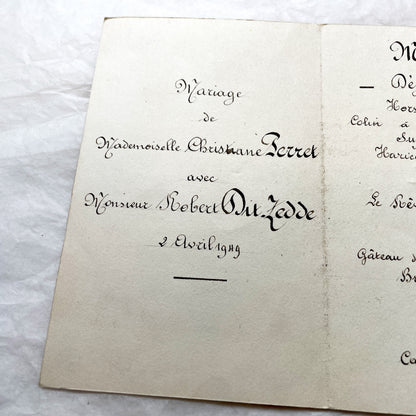 Mariage
de
Mademoiselle Christiane Perret
avec
Monsieur Robert Dit-Zedde
2 Avril 1949
M
— Déj
Hors
Colin à
Su
Haric
Le Rê
Gâteau
B
Ca